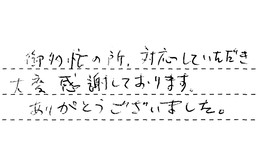 御多忙の所、対応していただき
大変感謝しております。
ありがとうございました。